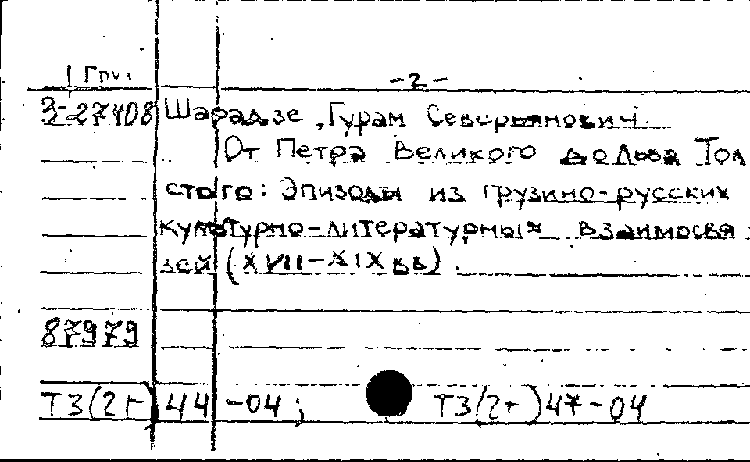 1 Гру. -2-
3-27408 Шарадзе, Гурам Северьянович
От Петра Великого до Льва Тол
стого: Эпизоды из грузино-русских
культурно-литературных взаимосвя
зей (XVII-XIX вв).
87979
Т3(2Г)44-04; Т3(2г)47-04